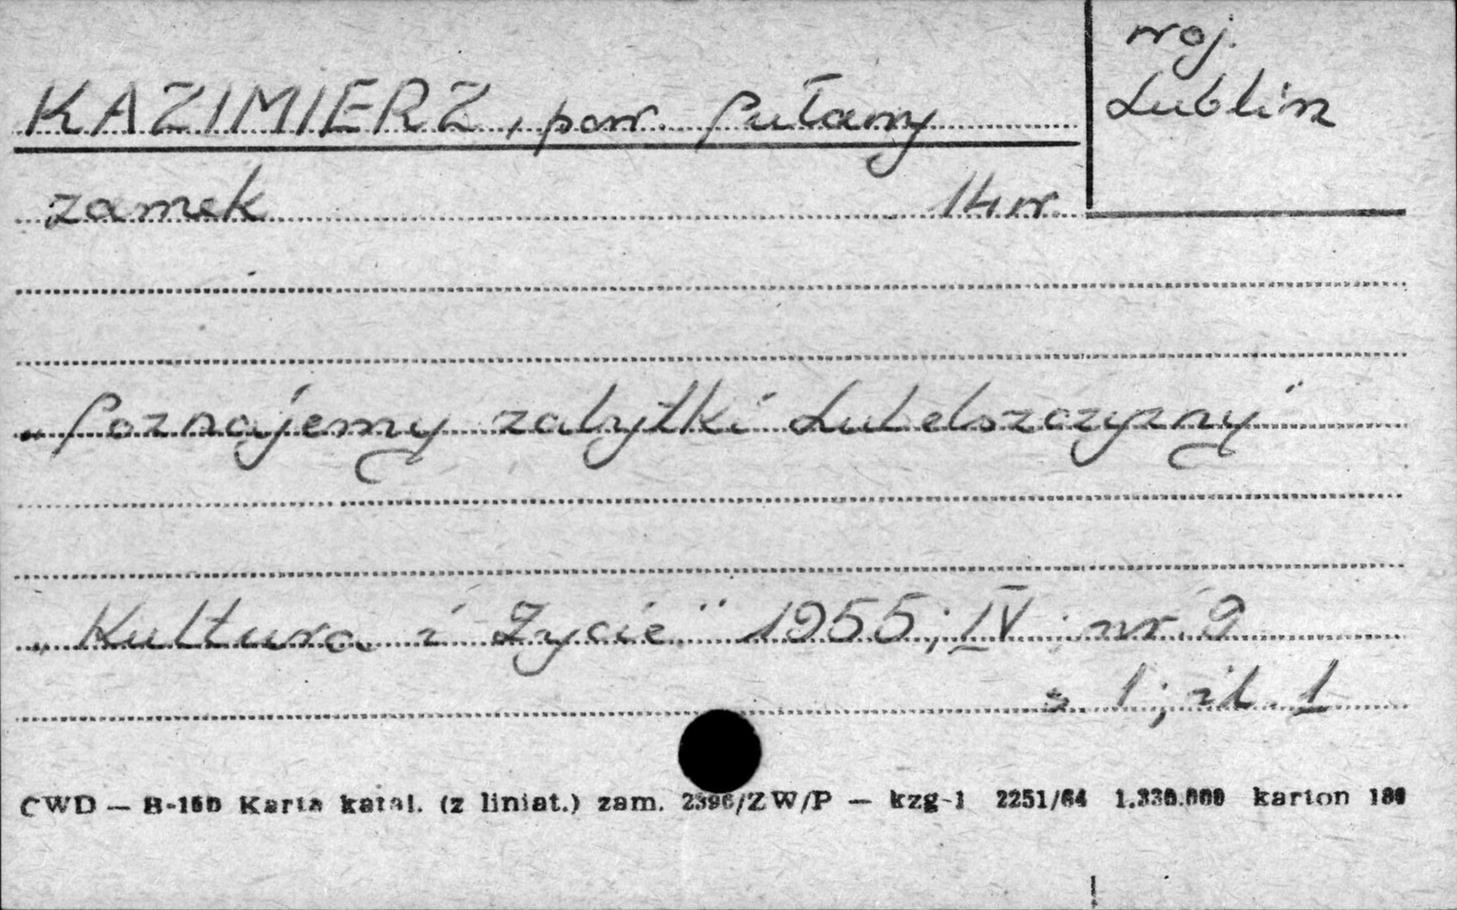 woj.
Lublin
KAZIMIERZ, pow. Puławy
zamek 14 w.
„Poznajemy zabytki Lubelszczyzny"
„Kultura i Życie" 1955; IV; nr. 9
s. 1; il. 1
CWD — B-16b Karta katal. (z liniat.) zam. 2396/ZW/P — kzg-1 2251/64 1.330.000 karton